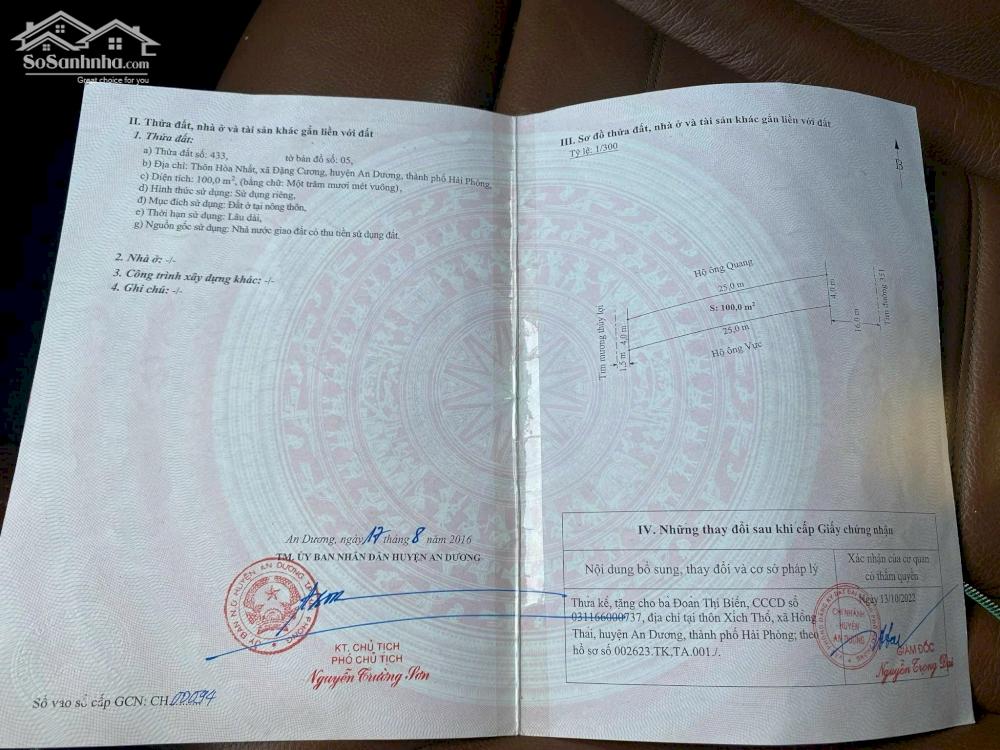 SoSanhnha.com
Great choice for you
II. Thửa đất, nhà ở và tài sản khác gắn liền với đất
1. Thửa đất:
a) Thửa đất số: 433, tờ bản đồ số: 05,
b) Địa chỉ: Thôn Hòa Nhất, xã Đặng Cương, huyện An Dương, thành phố Hải Phòng,
c) Diện tích: 100,0 m², (bằng chữ: Một trăm mươi mét vuông),
d) Hình thức sử dụng: Sử dụng riêng,
đ) Mục đích sử dụng: Đất ở tại nông thôn,
e) Thời hạn sử dụng: Lâu dài,
g) Nguồn gốc sử dụng: Nhà nước giao đất có thu tiền sử dụng đất.
2. Nhà ở: -/-
3. Công trình xây dựng khác: -/-
4. Ghi chú: -/-
An Dương, ngày 17 tháng 8 năm 2016
TM. ỦY BAN NHÂN DÂN HUYỆN AN DƯƠNG
KT. CHỦ TỊCH
PHÓ CHỦ TỊCH
Nguyễn Trường Sơn
Số vào sổ cấp GCN: CH
III. Sơ đồ thửa đất, nhà ở và tài sản khác gắn liền với đất
Tỷ lệ: 1/300
B
Hộ ông Quang
25,0 m
S: 100,0 m²
25,0 m
Hộ ông Vực
Tim mương thủy lợi
1,5 m
4,0 m
4,0 m
16,0 m
Tim đường 351
IV. Những thay đổi sau khi cấp Giấy chứng nhận
Nội dung bổ sung, thay đổi và cơ sở pháp lý
Xác nhận của cơ quan
có thẩm quyền
Thừa kế, tặng cho bà Đoàn Thị Biển, CCCD số
031166000737, địa chỉ tại thôn Xích Thổ, xã Hồng
Thái, huyện An Dương, thành phố Hải Phòng; theo
hồ sơ số 002623.TK,TA.001./.
Ngày 13/10/2022
CHI NHÁNH
HUYỆN
AN DƯƠNG
GIÁM ĐỐC
Nguyễn Trọng Đại